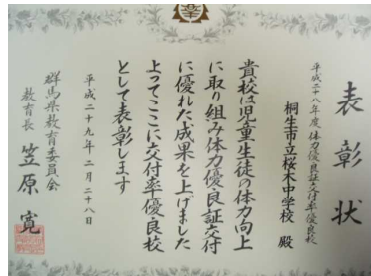 表彰状
平成二十八年度 体力優良証交付率優良校
桐生市立桜木中学校 殿
貴校は児童生徒の体力向上
に取り組み体力優良証交付
に優れた成果を上げました
よってここに交付率優良校
として表彰します
平成二十九年二月二十八日
群馬県教育委員会
教育長 笠原 寛